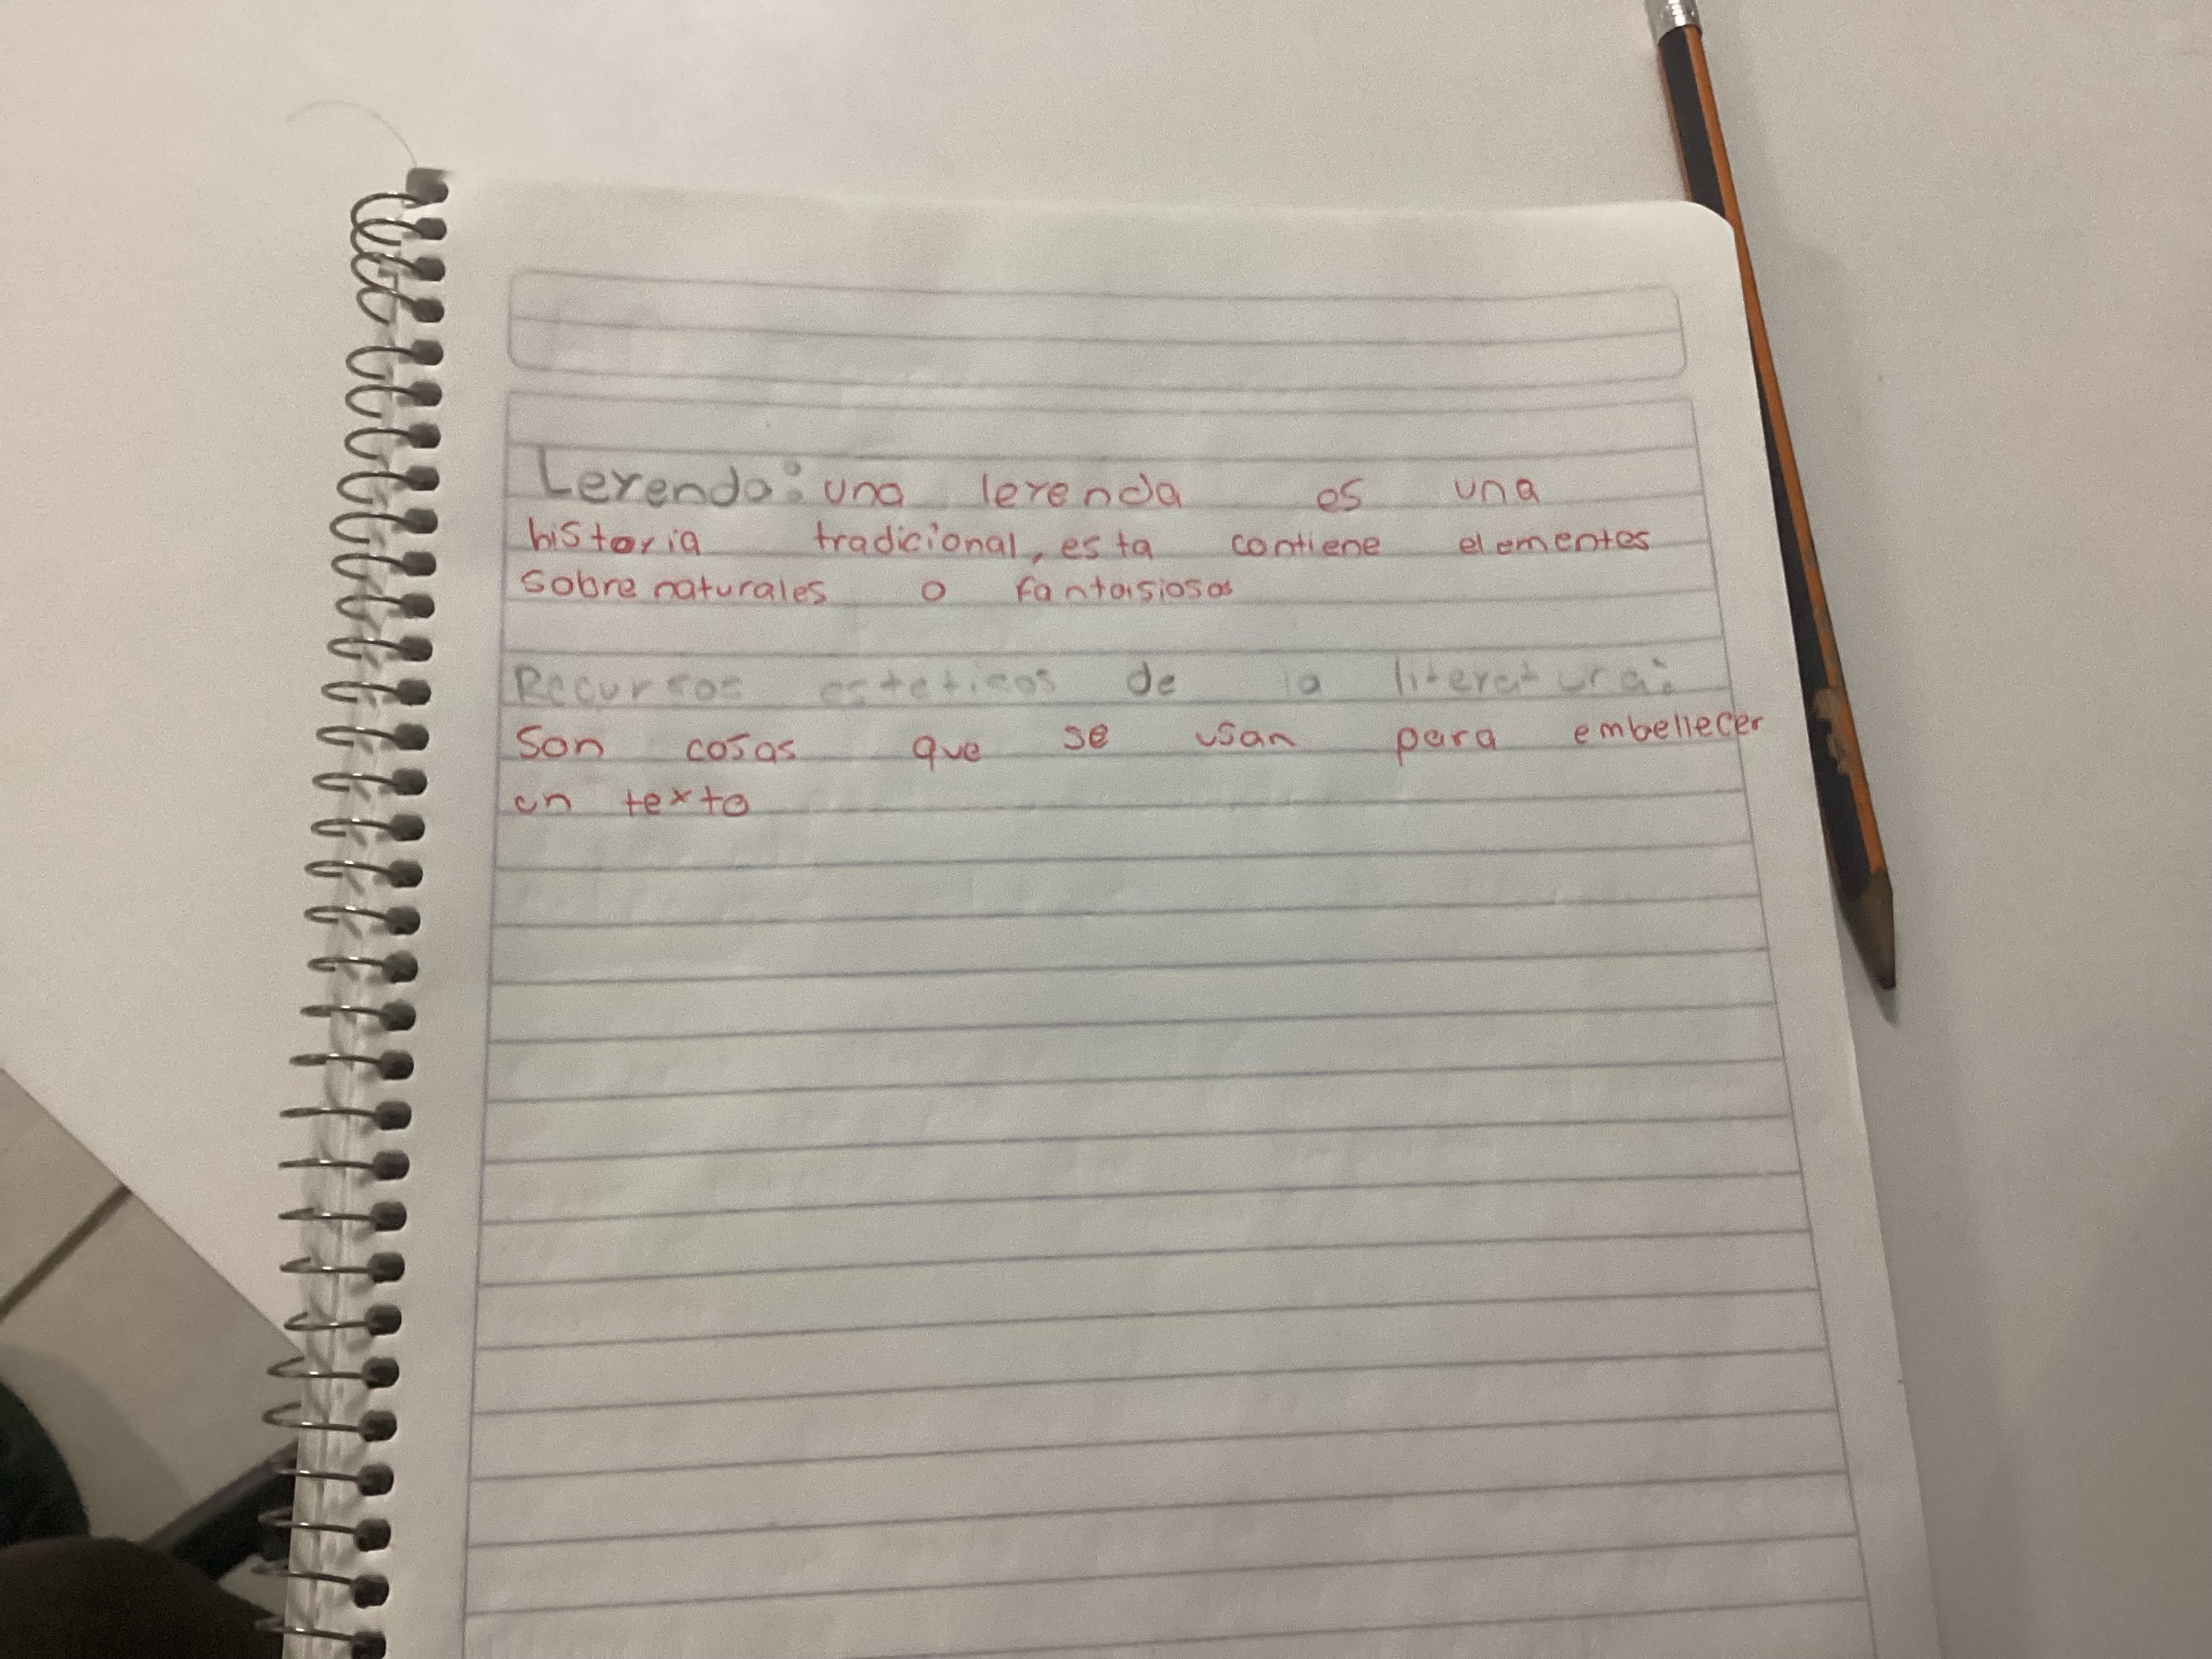 Leyenda: una leyenda es una
historia tradicional, esta contiene elementos
sobrenaturales o fantasiosos
Recursos esteticos de la literatura:
Son cosas que se usan para embellecer
un texto